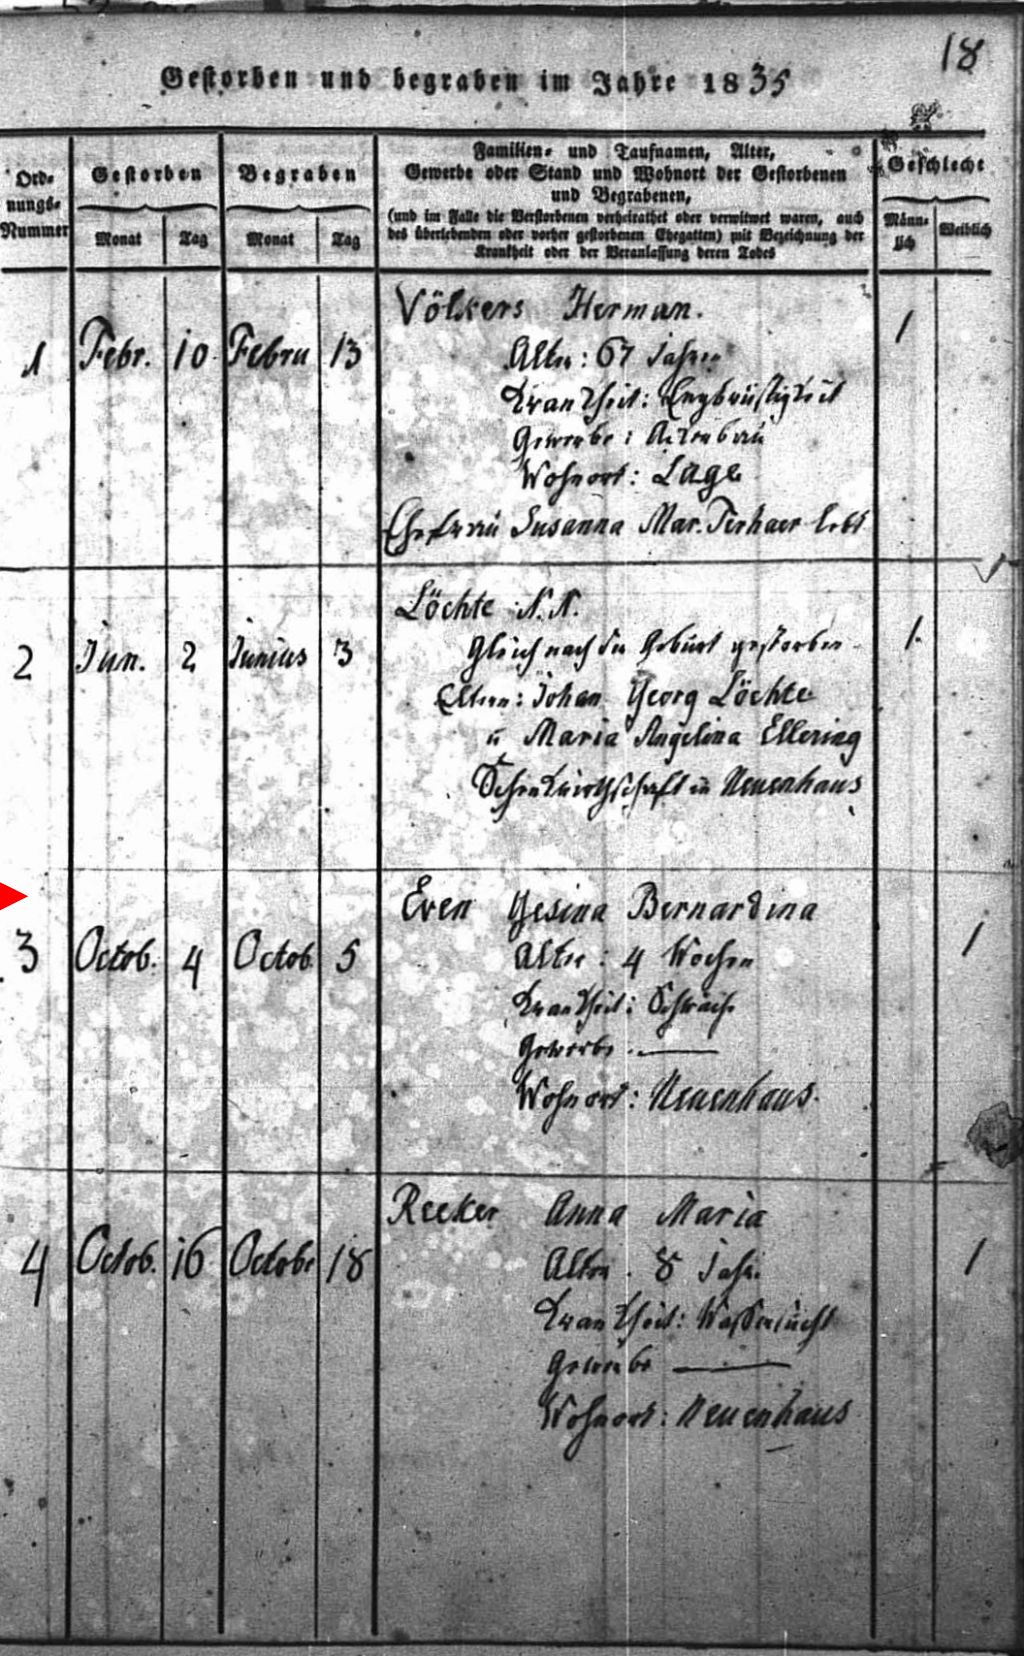 18
Gestorben und begraben im Jahre 1835
Ord-
nungs-
Nummer
Gestorben
Monat
Tag
Begraben
Monat
Tag
Familien- und Taufnamen, Alter,
Gewerbe oder Stand und Wohnort der Gestorbenen
und Begrabenen,
(und im Falle die Verstorbenen verheirathet oder verwittwet waren, auch
des überlebenden oder vorher gestorbenen Ehegatten) mit Bezeichnung der
Krankheit oder der Veranlassung deren Todes
Geschlecht
Männ-
lich
Weiblich
Völkers Herman.
1 Febr. 10 Febru 13 1
Alter: 67 Jahre
Krankheit: Engbrüstigkeit
Gewerbe: Ackerbau
Wohnort: Lage
Ehefrau Susanna Mar. Terhaer lebt
Löchte N. N.
2 Jun. 2 Junius 3 1.
Gleich nach der Geburt gestorben
Eltern: Johan Georg Löchte
u Maria Angelina Ellering
Schenkwirthschaft in Neuenhaus
Even Gesina Bernardina
3 Octob. 4 Octob. 5 1
Alter: 4 Wochen
Krankheit: Schwäche
Gewerbe
Wohnort: Neuenhaus.
Reeker Anna Maria
4 Octob. 16 Octobr 18 1
Alter. 8 Jahr.
Krankheit: Wassersucht
Gewerbe
Wohnort: Neuenhaus